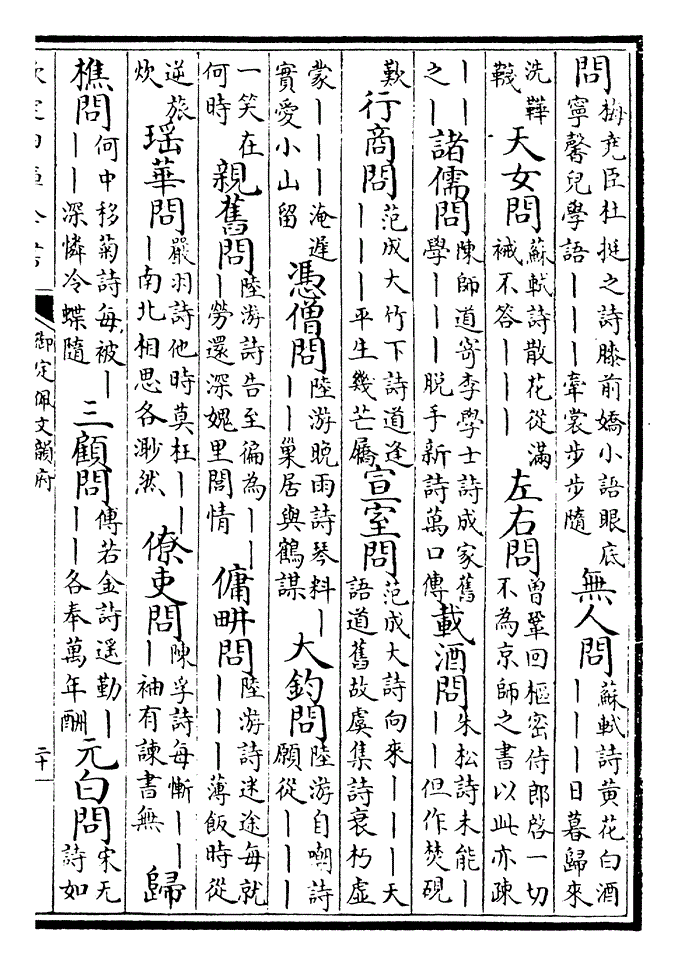 問梅堯臣杜挺之詩膝前嬌小語眼底寧馨兒學語｜｜｜牽裳步步隨無人問蘇軾詩黃花白酒｜｜｜日暮歸來
洗鞾韈天女問蘇軾詩散花從滿裓不答｜｜｜左右問曾鞏回樞密侍郎啓一切不為京師之書以此亦疎
｜｜之｜諸儒問陳師道寄李學士詩成家舊學｜｜｜脫手新詩萬口傳載酒問朱松詩未能｜｜｜但作焚硯
歎行商問范成大竹下詩道逢｜｜｜平生幾芒屩宣室問范成大詩向來｜｜｜天語道舊故虞集詩衰朽虛
蒙｜｜｜淹遲實愛小山留憑僧問陸游晚雨詩琴料｜｜｜巢居與鶴謀大鈞問陸游自嘲詩願從｜｜｜
一笑在何時親舊問陸游詩告至徧為｜｜｜勞還深媿里閭情傭畊問陸游詩迷途每就｜｜｜薄飯時從
逆旅炊瑶華問嚴羽詩他時莫枉｜｜｜南北相思各渺然僚吏問陳孚詩每慚｜｜｜袖有諫書無歸
樵問何中移菊詩每被｜｜｜深憐冷蝶隨三顧問傅若金詩遥勤｜｜｜各奉萬年酬元白問宋无詩如
御定佩文韻府